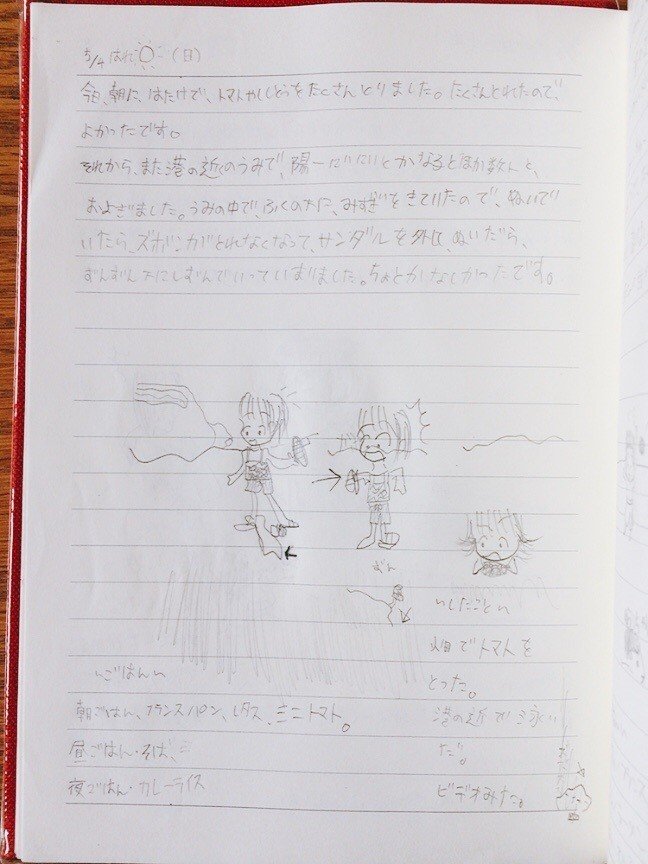 5/4 はれ (日)
今日、朝に、はたけで、トマトやししとうをたくさんとりました。たくさんとれたので、
よかったです。
それから、また港の近くのうみで、陽一にいにいとかなるとほか数人と、
およぎました。うみの中で、ふくの下に、みずぎをきていたので、ぬいで
いたら、ズボンがとれなくなって、サンダルを外し、ぬいだら、
ずんずん下にしずんでいっていまりました。ちょとかなしかったです。
ずん
いしたことい
畑でトマトを
とった。
港の近で泳い
だ。
ビデオみた。
いごはんい
朝ごはん、フランスパン、レタス、ミニトマト。
昼ごはん・そば、
夜ごはん・カレーライス